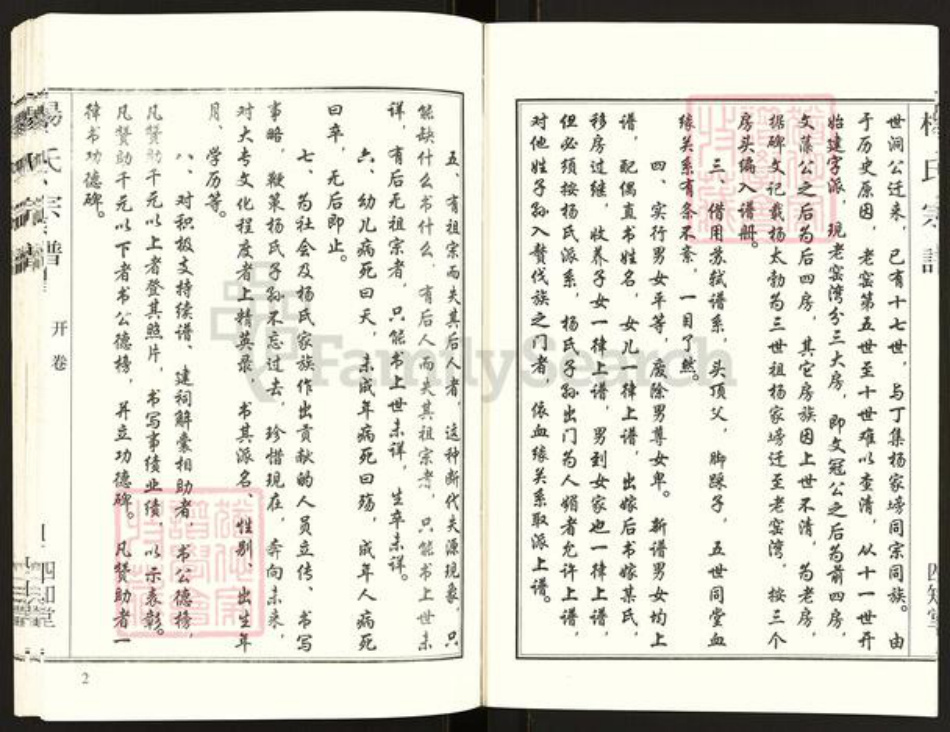 世洞公迁来，已有十七世，与丁集杨家塝同宗同族。由
于历史原因，老窑第五世至十世难以查清，从十一世开
始建字派，现老窑湾分三大房，即文冠公之后为前四房，
文藻公之后为后四房，其它房族因上世不清，为老房，
据碑文记载杨太勃为三世祖杨家塝迁至老窑湾，按三个
房头编入谱册。
三、借用苏轼谱系，头顶父，脚踩子，五世同堂血
缘关系有条不紊，一目了然。
四、实行男女平等，废除男尊女卑。新谱男女均上
谱，配偶直书姓名，女儿一律上谱，出嫁后书嫁某氏，
移房过继，收养子女一律上谱，男到女家也一律上谱，
但必须按杨氏派系，杨氏子孙出门为人婿者允许上谱，
对他姓子孙入赘伐族之门者，依血缘关系取派上谱。
四知堂
杨氏宗谱
开卷
四知堂
五、有祖宗而失其后人者，这种断代失源现象，只
能缺什么书什么，有后人而失其祖宗者，只能书上世未
详，有后无祖宗者，只能书上世未详，生卒未详。
六、幼儿病死曰夭，未成年病死曰殇，成年人病死
曰卒，无后即止。
七、为社会及杨氏家族作出贡献的人员立传、书写
事略，鞭策杨氏子孙不忘过去，珍惜现在，奔向未来，
对大专文化程度者上精英录，书其派名、性别、出生年
月、学历等。
八、对积极支持续谱、建祠解囊相助者，书公德榜，
凡赞助千元以上者登其照片，书写事绩业绩，以示表彰。
凡赞助千元以下者书公德榜，并立功德碑。凡赞助者一
律书功德碑。
2
FamilySearch